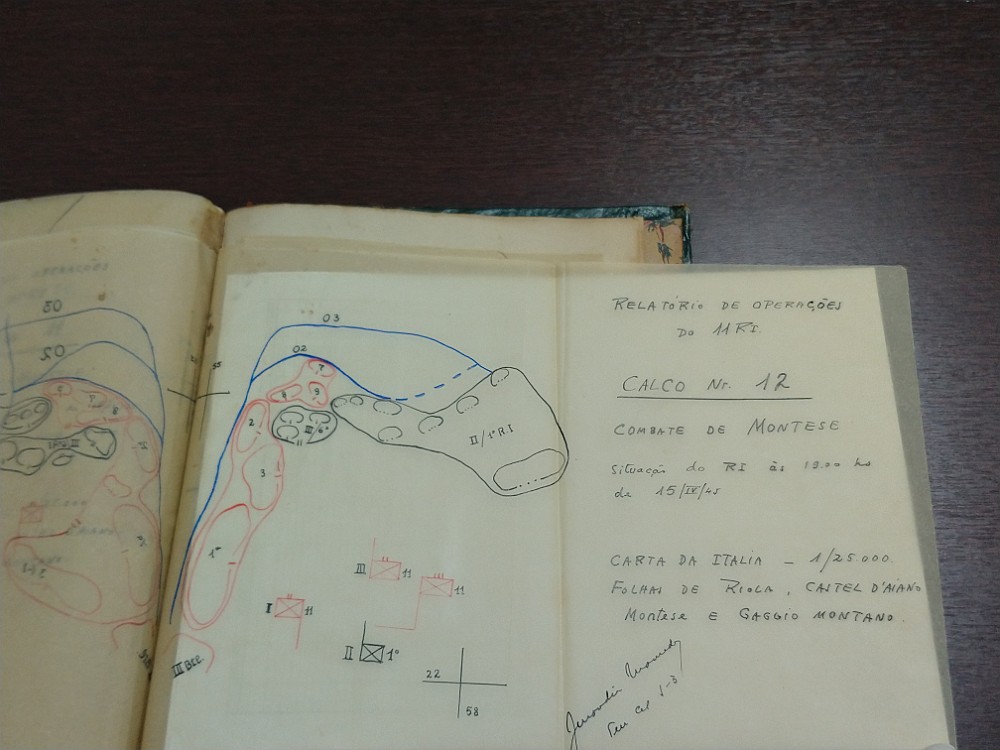 RELATÓRIO DE OPERAÇÕES
DO 11 RI.
CALCO Nr. 12
COMBATE DE MONTESE
Situação do RI às 19.00 hs
de 15/IV/45
CARTA DA ITALIA – 1/25.000.
FOLHAS DE RIOLA, CASTEL D'AIANO
Montese E GAGGIO MONTANO.
Ten Cel S-3
03
02
7
8
9
2
III
11
3
1ª
II/1º R.I
III 11
11
I 11
II 1º
III Bce.
22
58
OPERAÇÕES
03
02